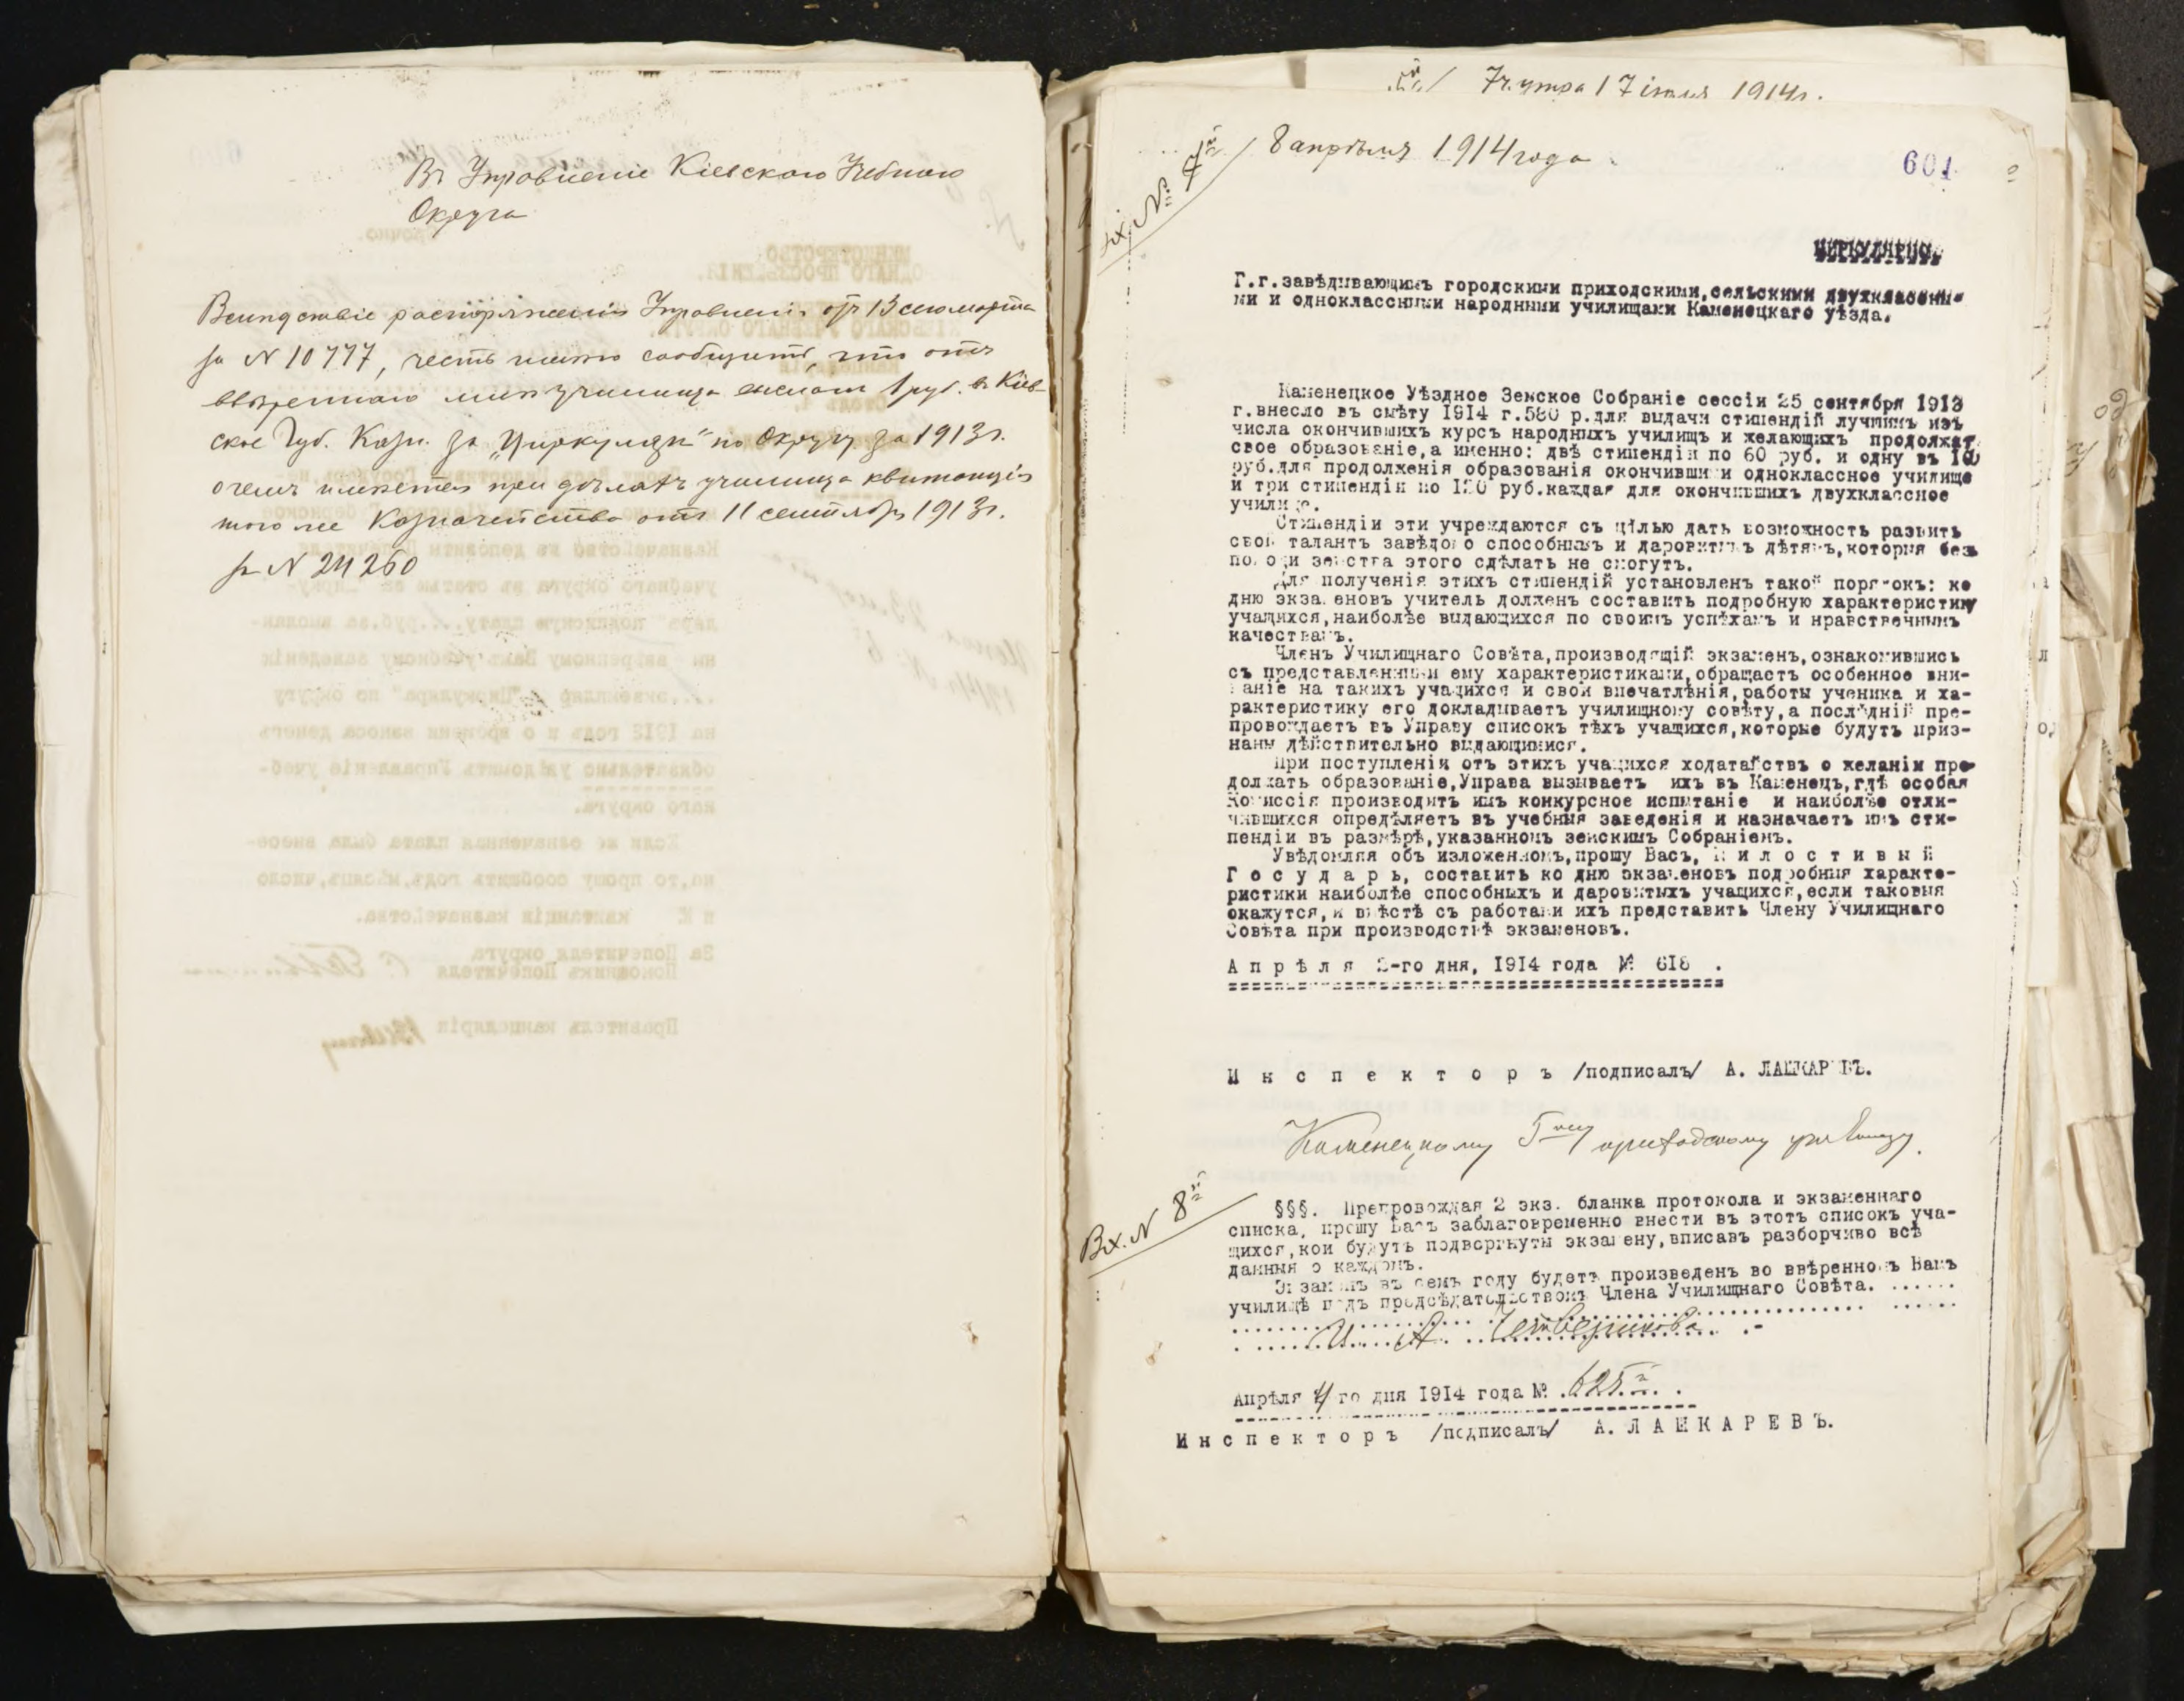 Въ Управленіе Кіевскаго Учебнаго
Округа
Вслѣдствіе распоряженія Управленія отъ 13 сего марта
за N 10777, честь имѣю сообщить, что отъ
ввѣреннаго мнѣ училища внесены 1 руб. въ Кіев-
ское Губ. Казн. за „Циркуляръ" по Округу за 1913 г.
о чемъ имѣется при дѣлахъ училища квитанція
того же Казначейства отъ 11 сентября 1913 г.
за N 24260
7 ч. утра 17 іюля 1914 г.
Вх. №
8 апрѣля 1914 года
601
ЦИРКУЛЯРНО.
Г.г. завѣдывающимъ городскими приходскими, сельскими двухклассны-
ми и одноклассными народными училищами Каменецкаго уѣзда.
Каменецкое Уѣздное Земское Собраніе сессіи 25 сентября 1913
г. внесло въ смѣту 1914 г. 580 р. для выдачи стипендій лучшимъ изъ
числа окончившихъ курсъ народныхъ училищъ и желающихъ продолжат
свое образованіе, а именно: двѣ стипендіи по 60 руб. и одну въ 100
руб. для продолженія образованія окончившими одноклассное училище
и три стипендіи по 120 руб. каждая для окончившихъ двухклассное
училище.
Стипендіи эти учреждаются съ цѣлью дать возможность развить
свой талантъ завѣдомо способнымъ и даровитымъ дѣтямъ, которыя безъ
помощи земства этого сдѣлать не смогутъ.
Для полученія этихъ стипендій установленъ такой порядокъ: ко
дню экзаменовъ учитель долженъ составить подробную характеристику
учащихся, наиболѣе выдающихся по своимъ успѣхамъ и нравственнымъ
качествамъ.
Членъ Училищнаго Совѣта, производящій экзаменъ, ознакомившись
съ представленными ему характеристиками, обращаетъ особенное вни-
маніе на такихъ учащихся и свои впечатлѣнія, работы ученика и ха-
рактеристику его докладываетъ училищному совѣту, а послѣдній пре-
провождаетъ въ Управу списокъ тѣхъ учащихся, которые будутъ приз-
наны дѣйствительно выдающимися.
При поступленія отъ этихъ учащихся ходатайствъ о желаніи про-
должать образованіе, Управа вызываетъ ихъ въ Каменецъ, гдѣ особая
Комиссія производитъ имъ конкурсное испытаніе и наиболѣе отли-
чившихся опредѣляетъ въ учебныя заведенія и назначаетъ имъ сти-
пендіи въ размѣрѣ, указанномъ земскимъ Собраніемъ.
Увѣдомляя объ изложенномъ, прошу Васъ, М и л о с т и в ы й
Г о с у д а р ь, составить ко дню экзаменовъ подробныя характе-
ристики наиболѣе способныхъ и даровитыхъ учащихся, если таковыя
окажутся, и вмѣстѣ съ работами ихъ представить Члену Училищнаго
Совѣта при производствѣ экзаменовъ.
А п р ѣ л я 2-го дня, 1914 года № 618 .
И н с п е к т о р ъ /подписалъ/ А. ЛАШКАРЕВЪ.
Каменецкому 5-му приходскому училищу.
Вх. N 8
§§§. Препровождая 2 экз. бланка протокола и экзаменнаго
списка, прошу Васъ заблаговременно внести въ этотъ списокъ уча-
щихся, кои будутъ подвергнуты экзамену, вписавъ разборчиво всѣ
данныя о каждомъ.
Экзаменъ въ семъ году будетъ произведенъ во ввѣренномъ Вамъ
училищѣ подъ предсѣдательствомъ Члена Училищнаго Совѣта. ......
И. А. Четверикова .-
Апрѣля 4 го дня 1914 года №. 625 .
И н с п е к т о р ъ /подписалъ/ А. Л А Ш К А Р Е В Ъ.